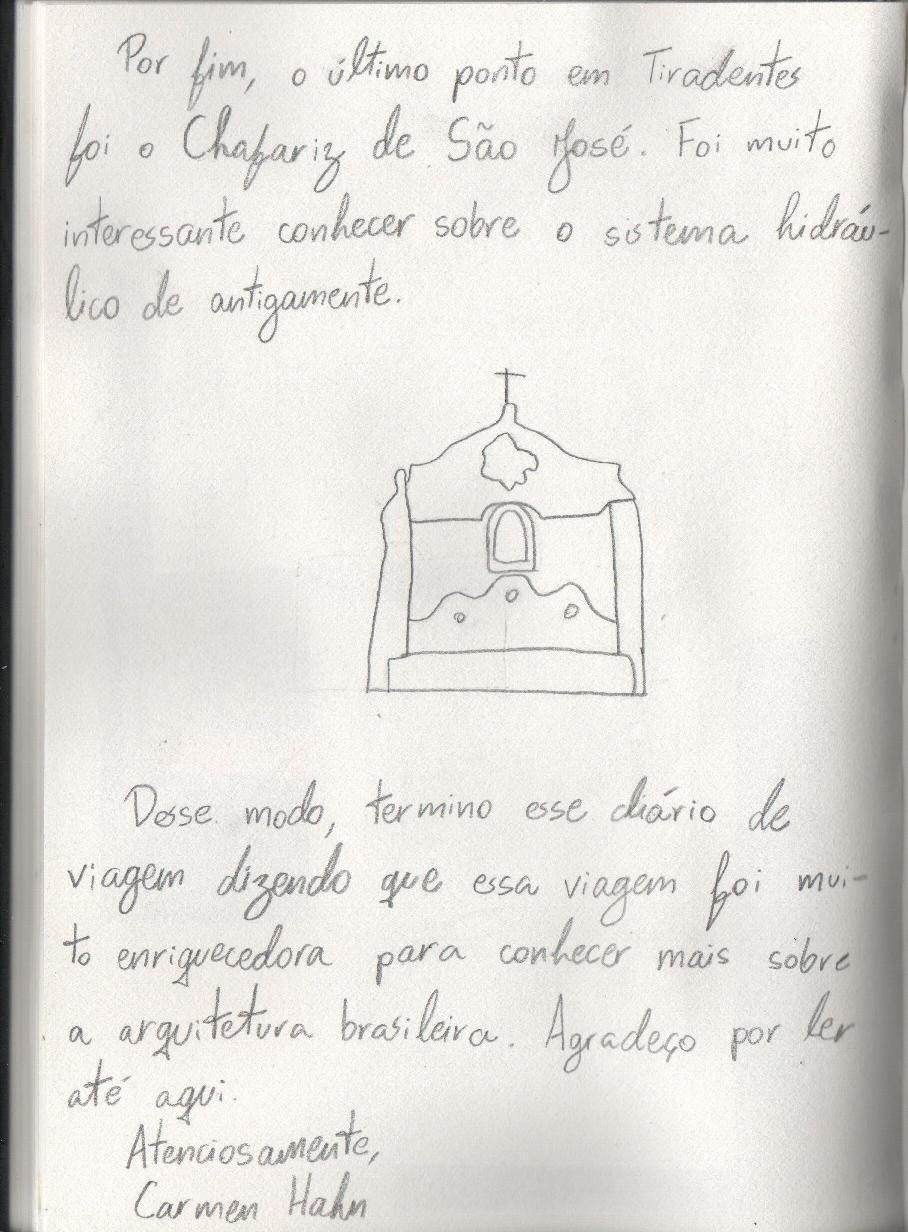 Por fim, o último ponto em Tiradentes
foi o Chafariz de São José. Foi muito
interessante conhecer sobre o sistema hidráu-
lico de antigamente.
Desse modo, termino esse diário de
viagem dizendo que essa viagem foi mui-
to enriquecedora para conhecer mais sobre
a arquitetura brasileira. Agradeço por ler
até aqui.
Atenciosamente,
Carmen Hahn